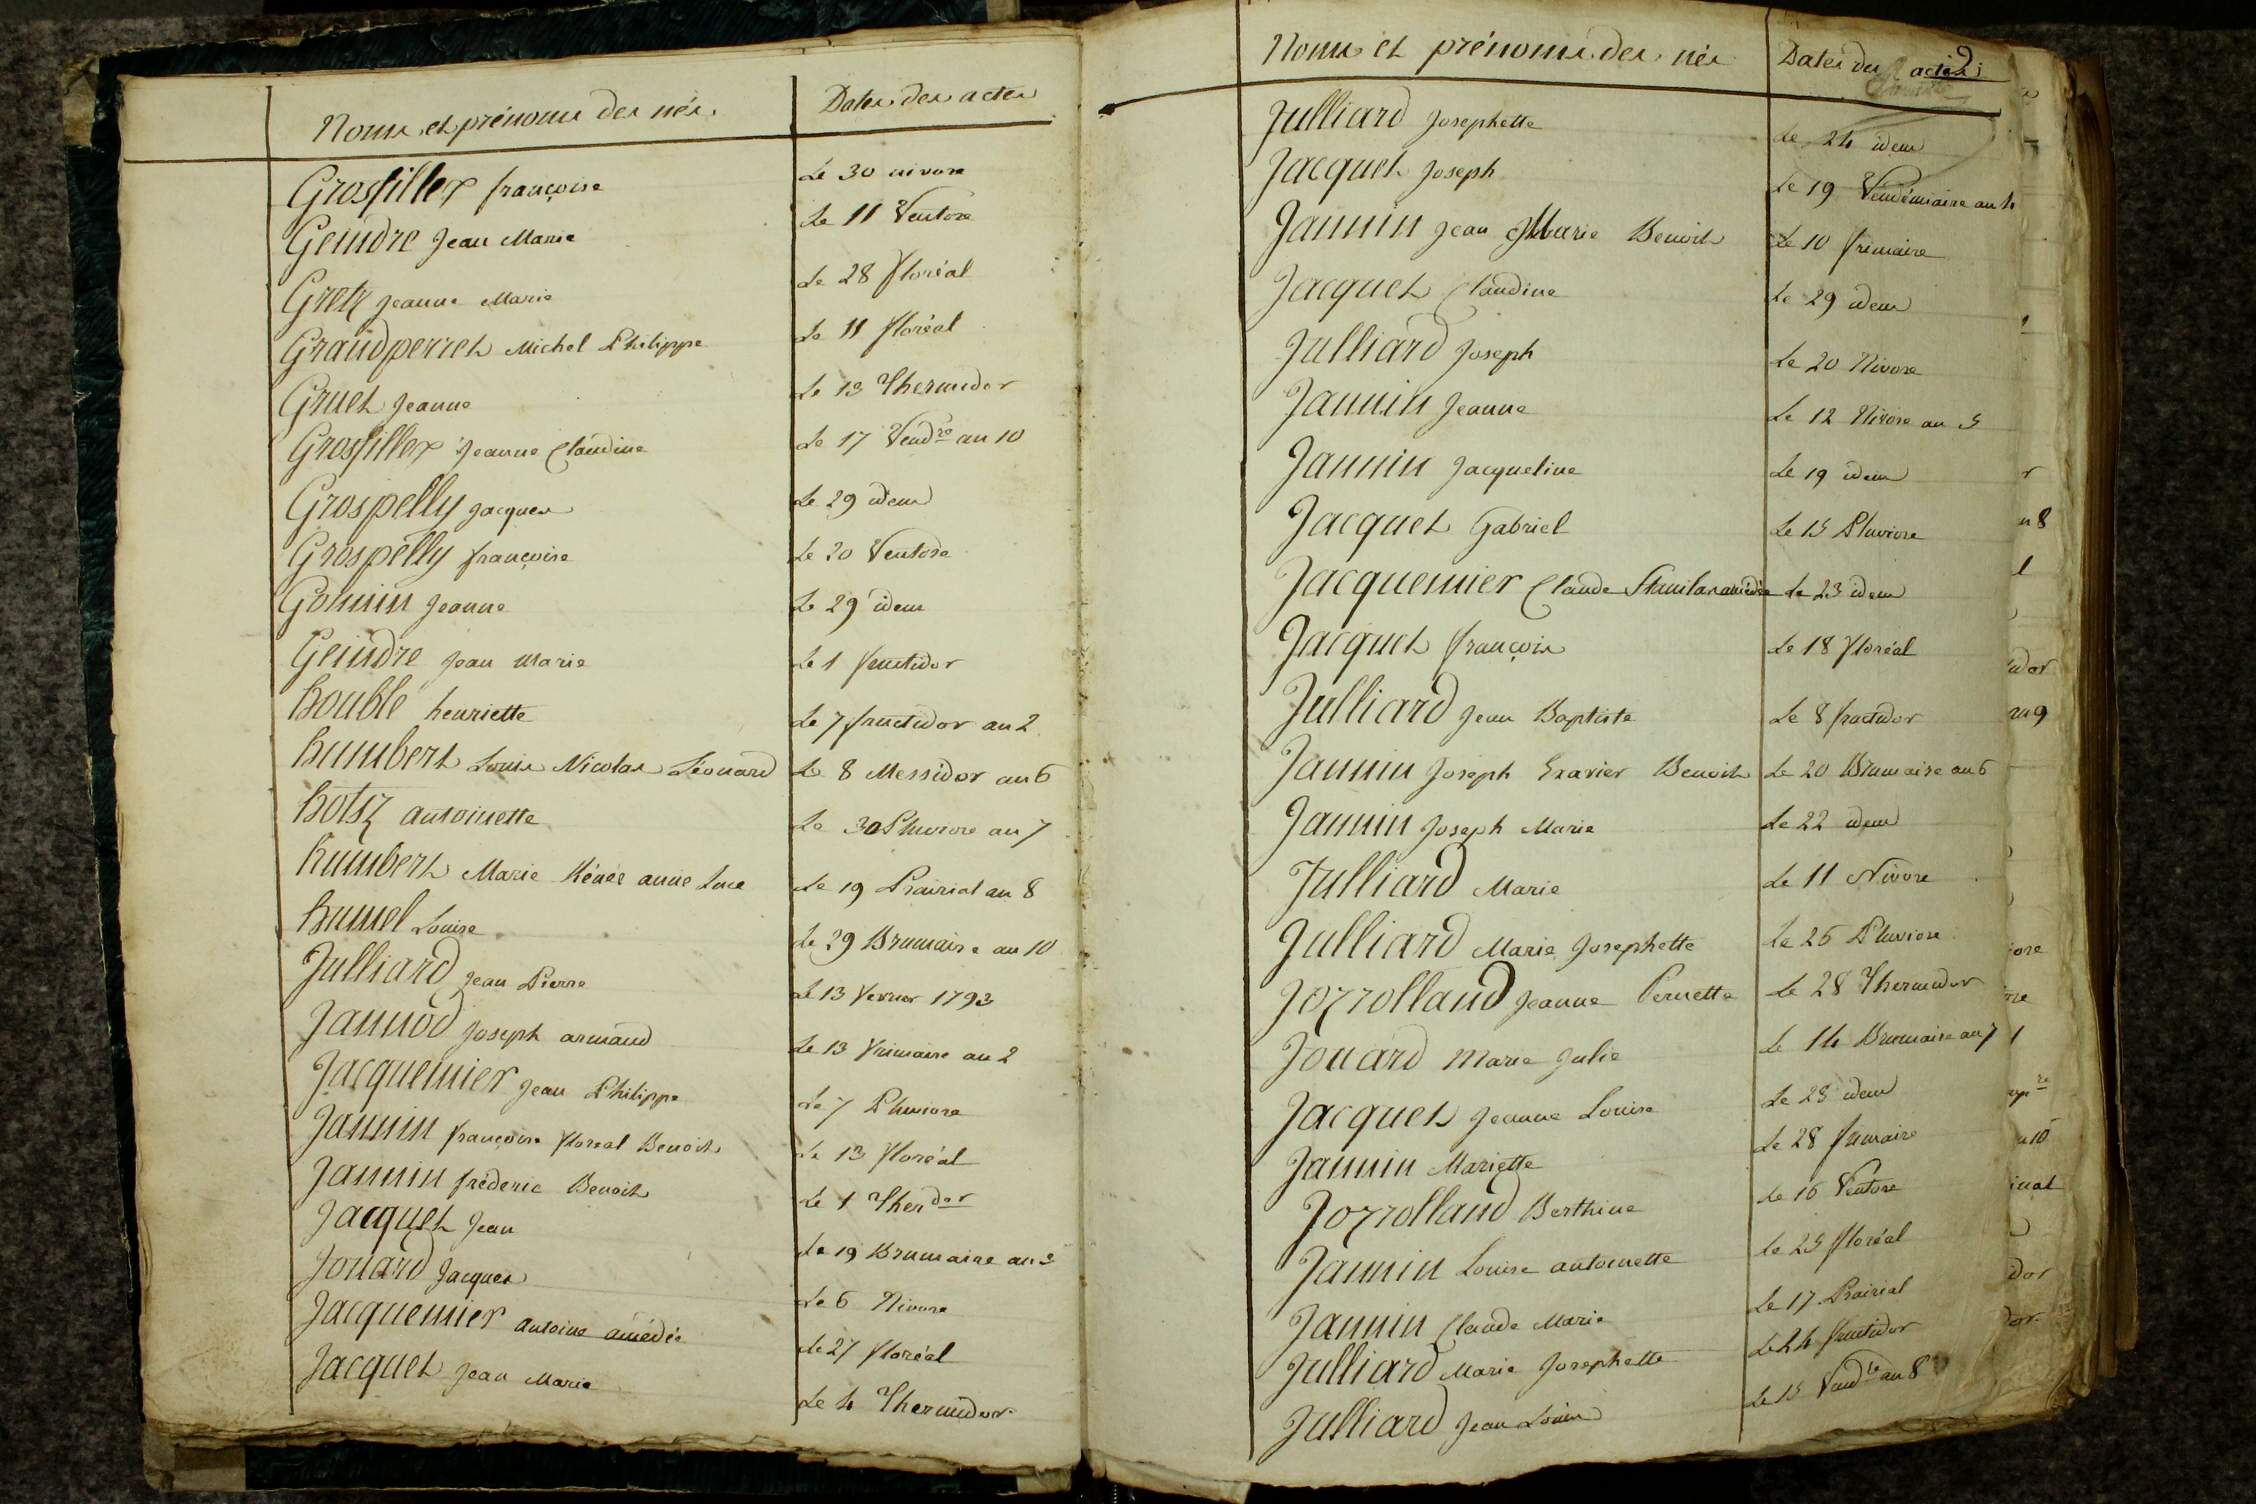 Noms et prénoms des nés. Dates des actes
Grosfillex françoise Le 30 nivose
Geindre Jean Marie Le 11 Ventose
Gretz Jeanne Marie Le 28 floréal
Grandperret Michel Philippe Le 11 floréal
Gruet Jeanne Le 13 Thermidor
Grosfillex Jeanne Claudine Le 17 Vendre an 10
Grospelly Jacques Le 29 idem
Grospelly françoise Le 20 Ventose
Gonnin Jeanne Le 29 idem
Geindre Jean Marie Le 1 fructidor
houblé henriette Le 7 fructidor an 2
humbert Louis Nicolas Léonard Le 8 Messidor an 6
hotsz antoinette Le 30 Pluviose an 7
humbert Marie Rénée anne Luce Le 19 Prairial an 8
humel Louise Le 29 Brumaire an 10
Julliard Jean Pierre Le 13 fevrier 1793
Jannod Joseph armand Le 13 frimaire an 2
Jacquemier Jean Philippe Le 7 Pluviose
Jannin françoise floreal Benoit Le 13 floréal
Jannin fréderic Benoit Le 1 Therdor
Jacquet Jean Le 19 Brumaire an 3
Jouard Jacques Le 6 Nivose
Jacquemier antoine amédée Le 27 floréal
Jacquet Jean Marie Le 4 Thermidor
Noms et prénoms des nés Dates des actes
9
Julliard Josephette Le 24 idem
Jacquet Joseph Le 19 Vendémiaire an 4
Jannin Jean Marie Benoit Le 10 frimaire
Jacquet Claudine Le 29 idem
Julliard Joseph Le 20 Nivose
Jannin Jeanne Le 12 Nivose an 5
Jannin Jacqueline Le 19 idem
Jacquet Gabriel Le 15 Pluviose
Jacquemier Claude Stanilas amédée Le 23 idem
Jacquet françois Le 18 floréal
Julliard Jean Baptiste Le 8 fructidor
Jannin Joseph Exavier Benoit Le 20 Brumaire an 6
Jannin Joseph Marie Le 22 idem
Julliard Marie Le 11 Nivose
Julliard Marie Josephette Le 26 Pluviose
Jozrolland Jeanne Pernette Le 28 Thermidor
Jouard Marie Julie Le 14 Brumaire an 7
Jacquet Jeanne Louise Le 28 idem
Jannin Mariette Le 28 frimaire
Jozrolland Berthine Le 16 Ventose
Jannin Louise antoinette Le 25 floréal
Jannin Claude Marie Le 17 Prairial
Julliard Marie Josephette Le 24 fructidor
Julliard Jean Louis Le 15 Vendre an 8